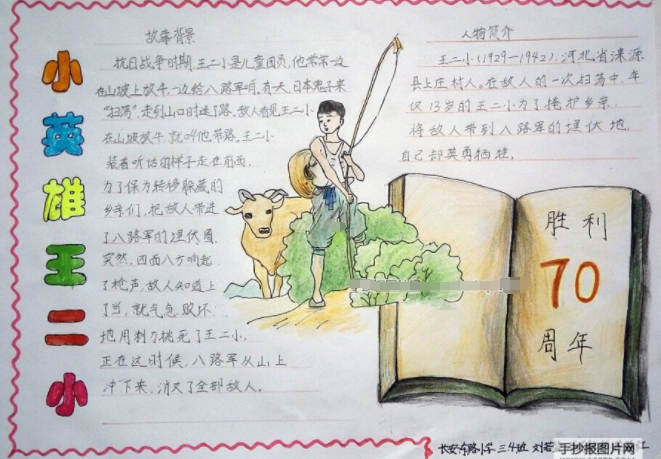 小英雄王二小
故事背景
抗日战争时期,王二小是儿童团员,他常常一边
在山坡上放牛,一边给八路军哨。有天,日本鬼子来
“扫荡”,走到山口时迷了路。敌人看见王二小
在山坡放牛,就叫他带路。王二小
装着听话的样子走在前面,
为了保力转移躲藏的
乡亲们,把敌人带进
了八路军的埋伏圈。
突然,四面八方响起
了枪声,敌人知道上
了当,就气急败坏
地用刺刀挑死了王二小。
正在这时候,八路军从山上
冲下来,消灭了全部敌人。
人物简介
王二小(1929-1942),河北省涞源
县上庄村人。在敌人的一次扫荡中,年
仅13岁的王二小为了掩护乡亲,
将敌人带到八路军的埋伏地,
自己却英勇牺牲。
胜利
70
周年
长安东路小学 三4班 刘
手抄报图片网